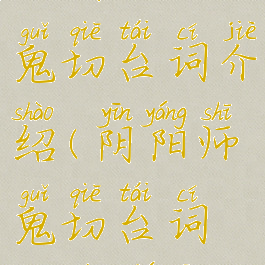 guǐ qiē tái cí jiè
鬼切台词介
shào yīn yáng shī
绍(阴阳师
guǐ qiē tái cí
鬼切台词